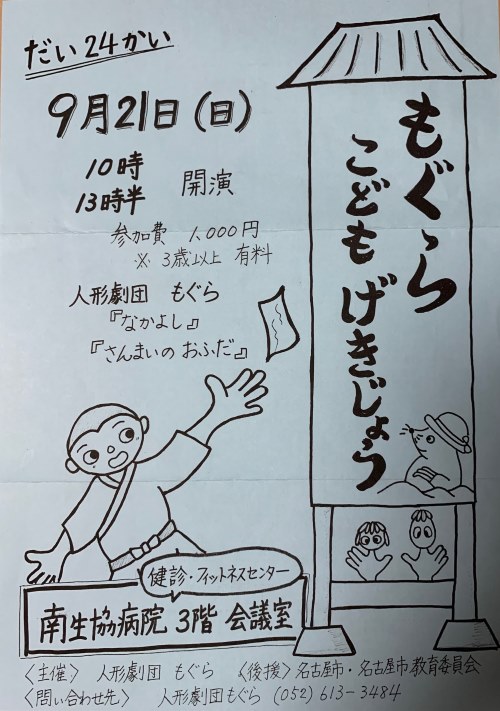 だい24かい
9月21日(日)
10時
13時半
開演
参加費 1,000円
※ 3歳以上 有料
人形劇団 もぐら
『なかよし』
『さんまいの おふだ』
もぐら
こども げきじょう
健診・フィットネスセンター
南生協病院 3階 会議室
〈主催〉 人形劇団 もぐら 〈後援〉名古屋市・名古屋市教育委員会
〈問い合わせ先〉 人形劇団もぐら (052) 613-3484